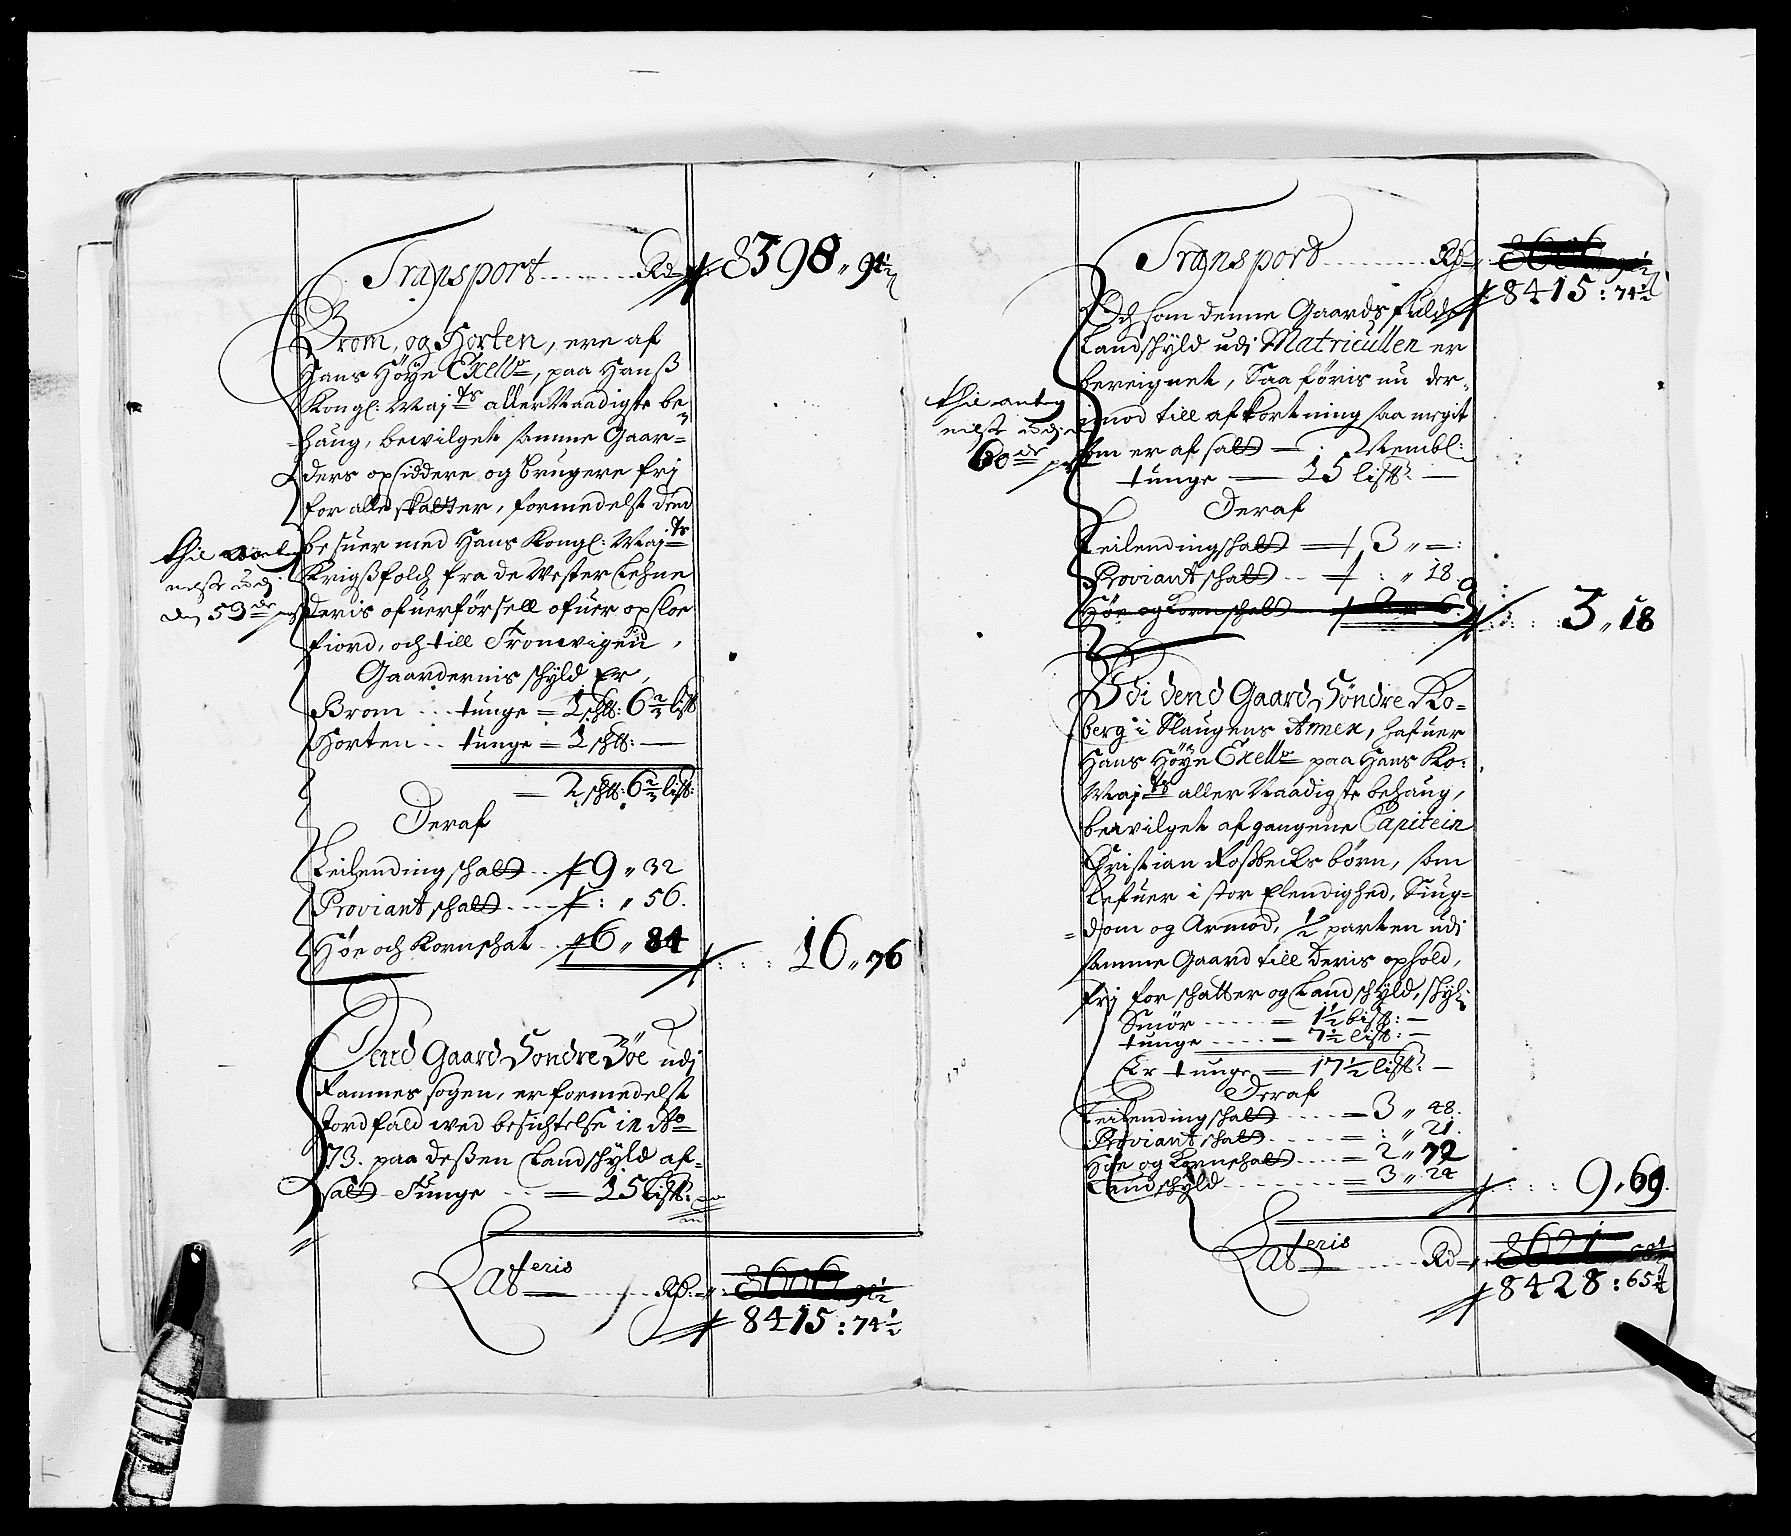 Transport ........ Rd 8398 „ 94½
Brom, og Horten, ere af
Hans Höye Excell:, paa Hans
Kongl: Maj:ts aller Naadigste be-
haug, bevilget samme Gaar-
ders opsiddere og brugere frj
for alle skatter, formedelst dend
besuer med Hans Kongl: Maj:ts
Krigsfolch fra de Wester Lehne
deris ofuerförsell ofuer opsloe
fiord, och till Tronvigen,
Gaardernis schyld Er,
Brom ... tunge = 1 schtt: 6⅔ list
Horten .. tunge = 1 schtt: —
= 2 schtt: 6⅔ list:
Deraf
Leilending schatt .. 9 „ 32
Proviant schatt .... : „ 56.
Höe och Kornschat .. 6 „ 84 .... 16 „ 76
thil
nelst udj
den 59de
Dend Gaard Söndre Böe udj
Ramnes sogen, er formedelst
Jordfald wed besichtelse in Ao
73. paa dessen Landschyld af-
satt Tunge ... = 15 list: —
Lateris ...... Rd: 8606 „ 91½
8415 : 74½
Transport ........ Rd 8606 „ 91½
8415 : 74½
Och som denne Gaards fulde
Landschyld udj Matricullen er
bereignet, Saa föris nu der-
imod till afkortning saa megit
som er af satt — : Nembl:
tunge — 15 list: —
Deraf
Leilendingschatt — 3 „ — :
Proviant schatt .. — : „ 18.
Höe og Kornschatt .... 3 „ 18
thil
nelst udj
60de
Udi dend Gaard Söndre Ro-
berg i Slaugens Annex, hafuer
Hans Höye Excell: paa Hans Ko:
Maj:ts aller Naadigste behaug,
bevilget afgangene Capitein
Christian Rossbecks börn, som
Lefuer i stor Elendighed, Siug-
dom og Armod, ½ parten udi
samme Gaard till deris ophold,
frj for schatter og Landschyld, schyl:
Smör ..... = 1½ bis: —
tunge .... = 7½ list: —
Er tunge = 17½ list: —
Deraf
Leilendingschatt ..... = 3 „ 48.
Proviant schatt ...... = : „ 21.
Höe og Kornschatt .... = 2 „ 72
Landschyld ........ = 3 „ 24 .... 9 „ 69.
Lateris ...... Rd 8621
8428 : 65½